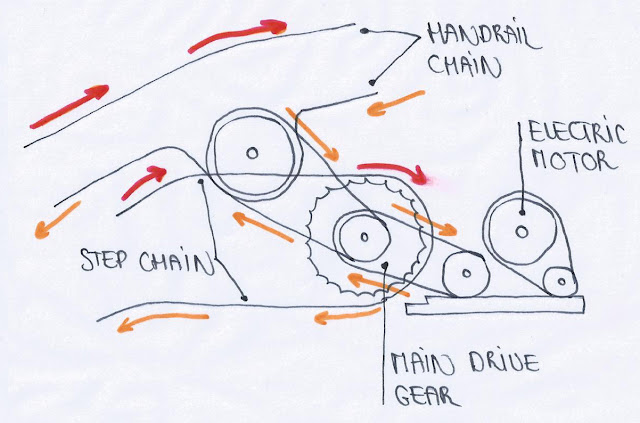 HANDRAIL
CHAIN
ELECTRIC
MOTOR
STEP CHAIN
MAIN DRIVE
GEAR